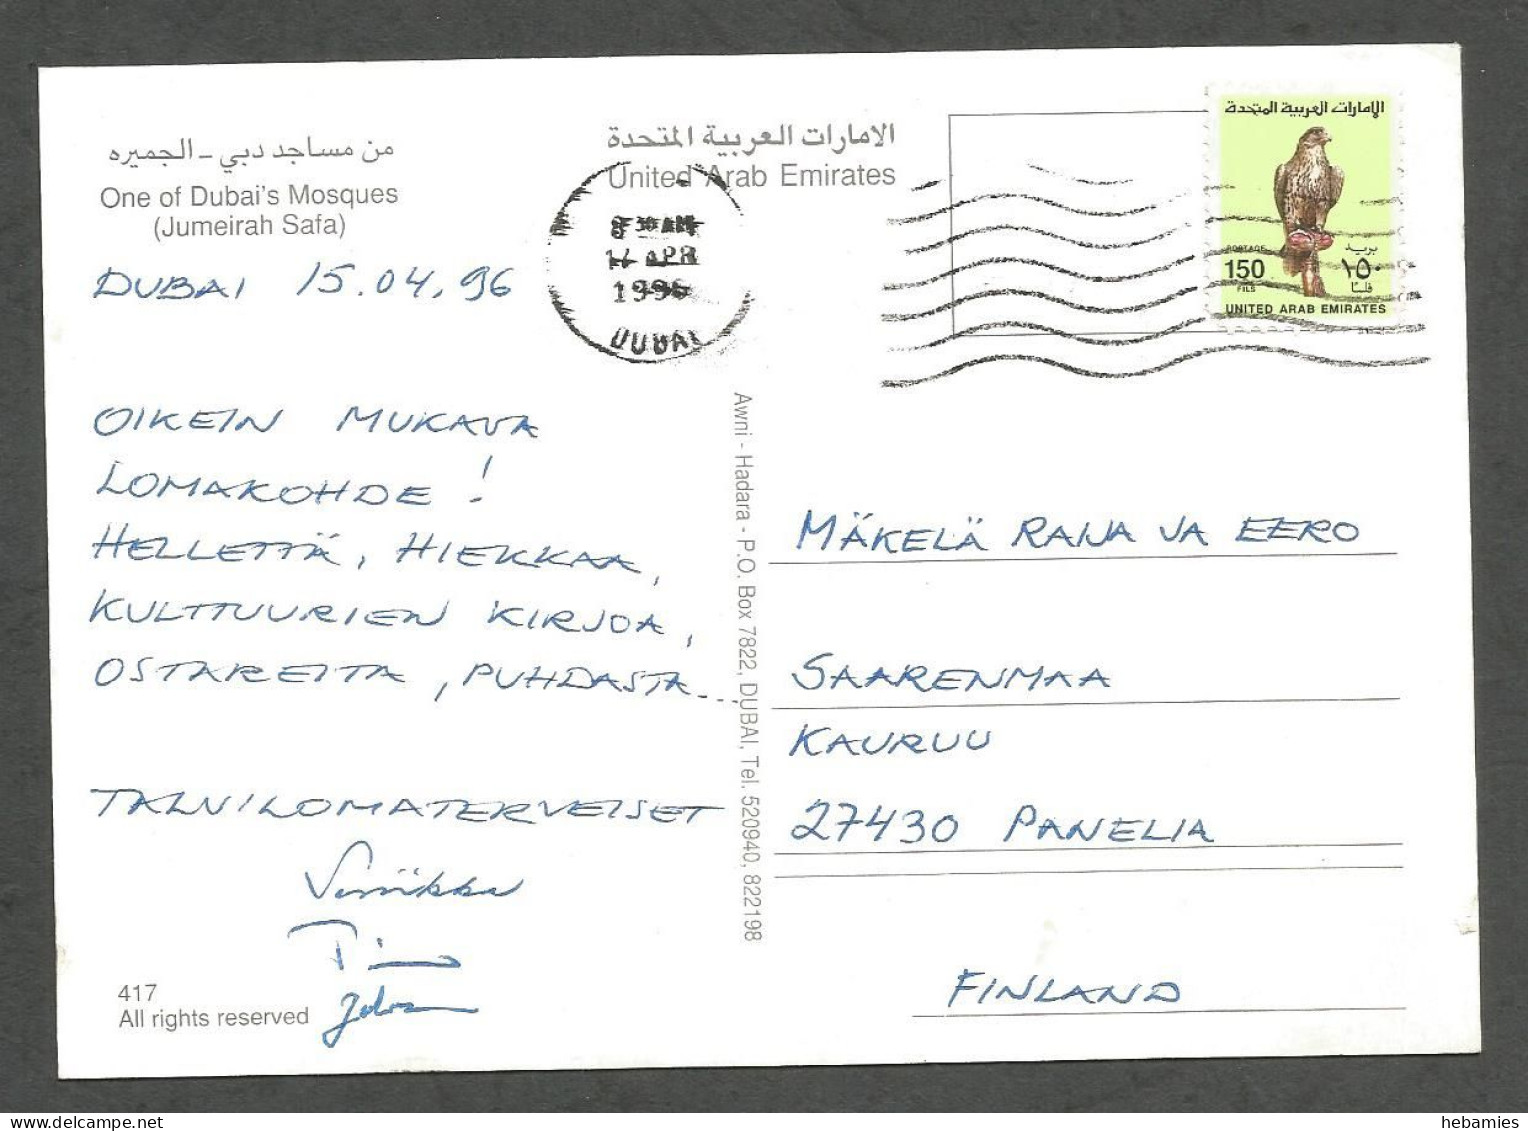 من مساجد دبي - الجميره
One of Dubai's Mosques
(Jumeirah Safa)
الامارات العربية المتحدة
United Arab Emirates
DUBAI 15.04.96
APR
DUBAI
الإمارات العربية المتحدة
POSTAGE
بريد
150
١٥٠
FILS
فلسًا
UNITED ARAB EMIRATES
OIKEIN MUKAVA
LOMAKOHDE !
HELLETTÄ, HIEKKAA,
KULTTUURIEN KIRJOA,
OSTAREITA, PUHDASTA...
TALVILOMATERVEISET
417
All rights reserved
Awni - Hadara - P.O. Box 7822, DUBAI, Tel. 520940, 822198
MÄKELÄ RAIJA JA EERO
SAARENMAA
KAURUU
27430 PANELIA
FINLAND
hebamies